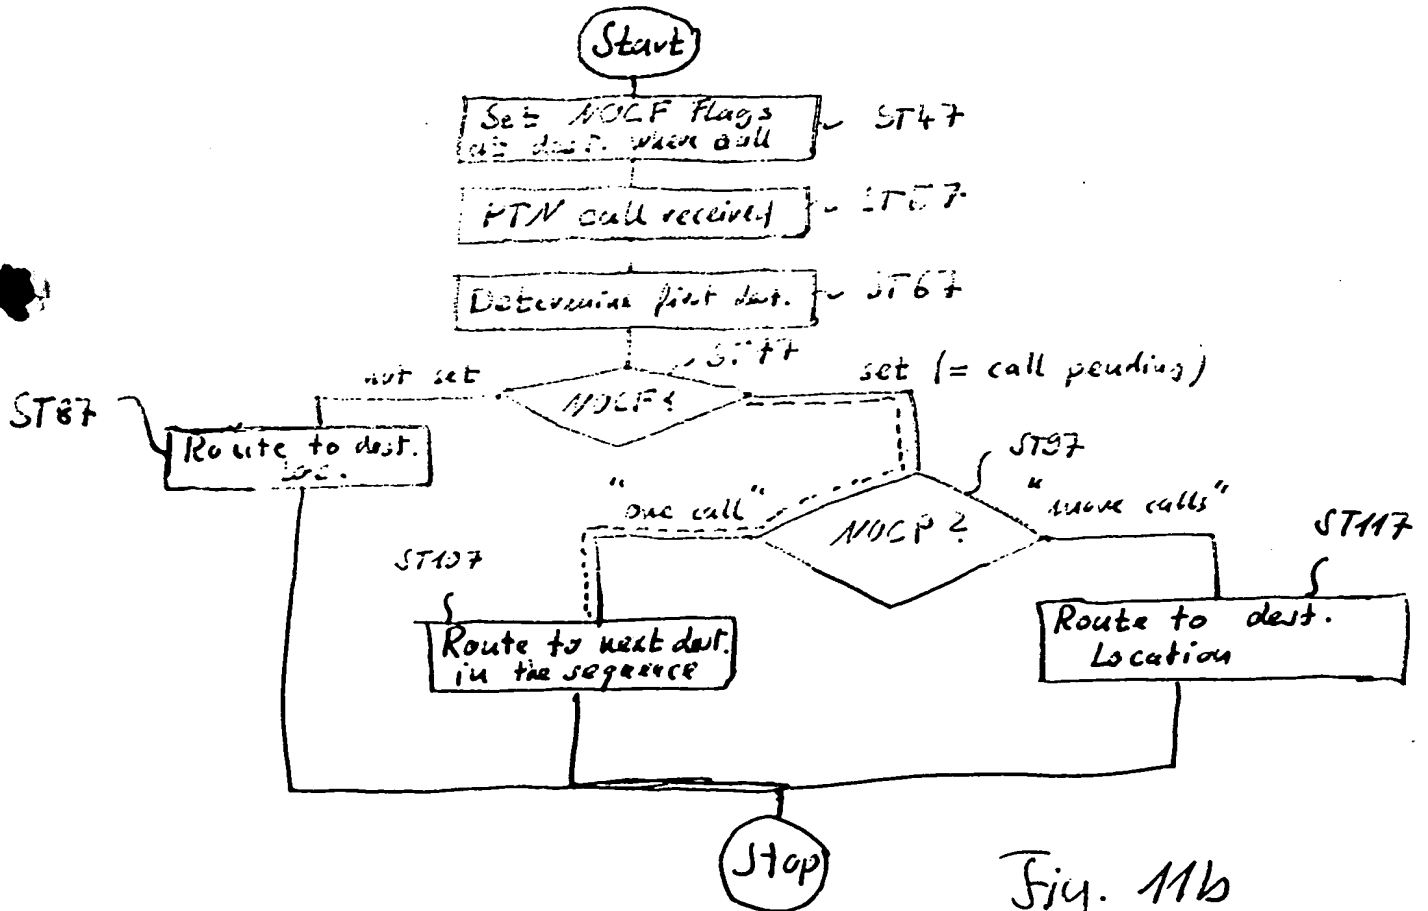 Start
Set NOCF Flags
at dest. when call
ST47
PTN call received
ST57
Determine first dest.
ST67
ST77
not set
NOCF?
set (= call pending)
ST87
Route to dest.
loc.
ST97
"one call"
NOCP?
"more calls"
ST107
ST117
Route to next dest.
in the sequence
Route to dest.
Location
Stop
Fig. 11b